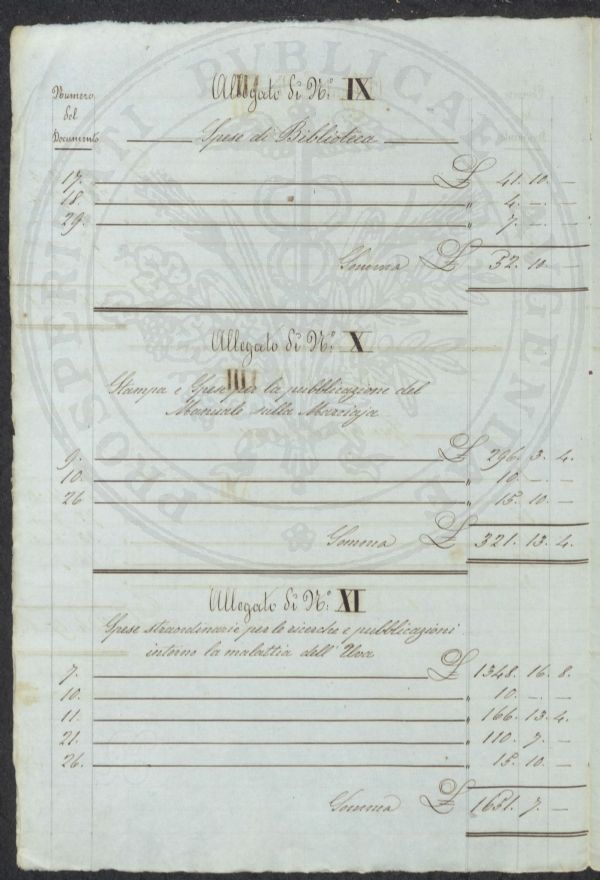 PROSPERITATI PVBLICAE AVGENDAE
Numero
del
Documento
Allegato di N.º IX
Spese di Biblioteca
17. £ 41. 10. —
18. " 4. — —
29. " 7. — —
Somma £ 52. 10. —
Allegato di N.º X
Stampa e Spese per la pubblicazione del
Manuale sulla Marciaja
9. £ 296. 3. 4.
10. " 10. — —
26 " 15. 10. —
Somma £ 321. 13. 4.
Allegato di N.º XI
Spese straordinarie per le ricerche e pubblicazioni
intorno la malattia dell'Uva
7. £ 1348. 16. 8.
10. " 10. — —
11. " 166. 13. 4.
21. " 110. 7. —
26. " 15. 10. —
Somma £ 1651. 7. —